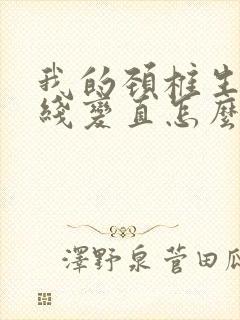 我的頚柱生
綫變直怎麼
澤野泉菅田瓜